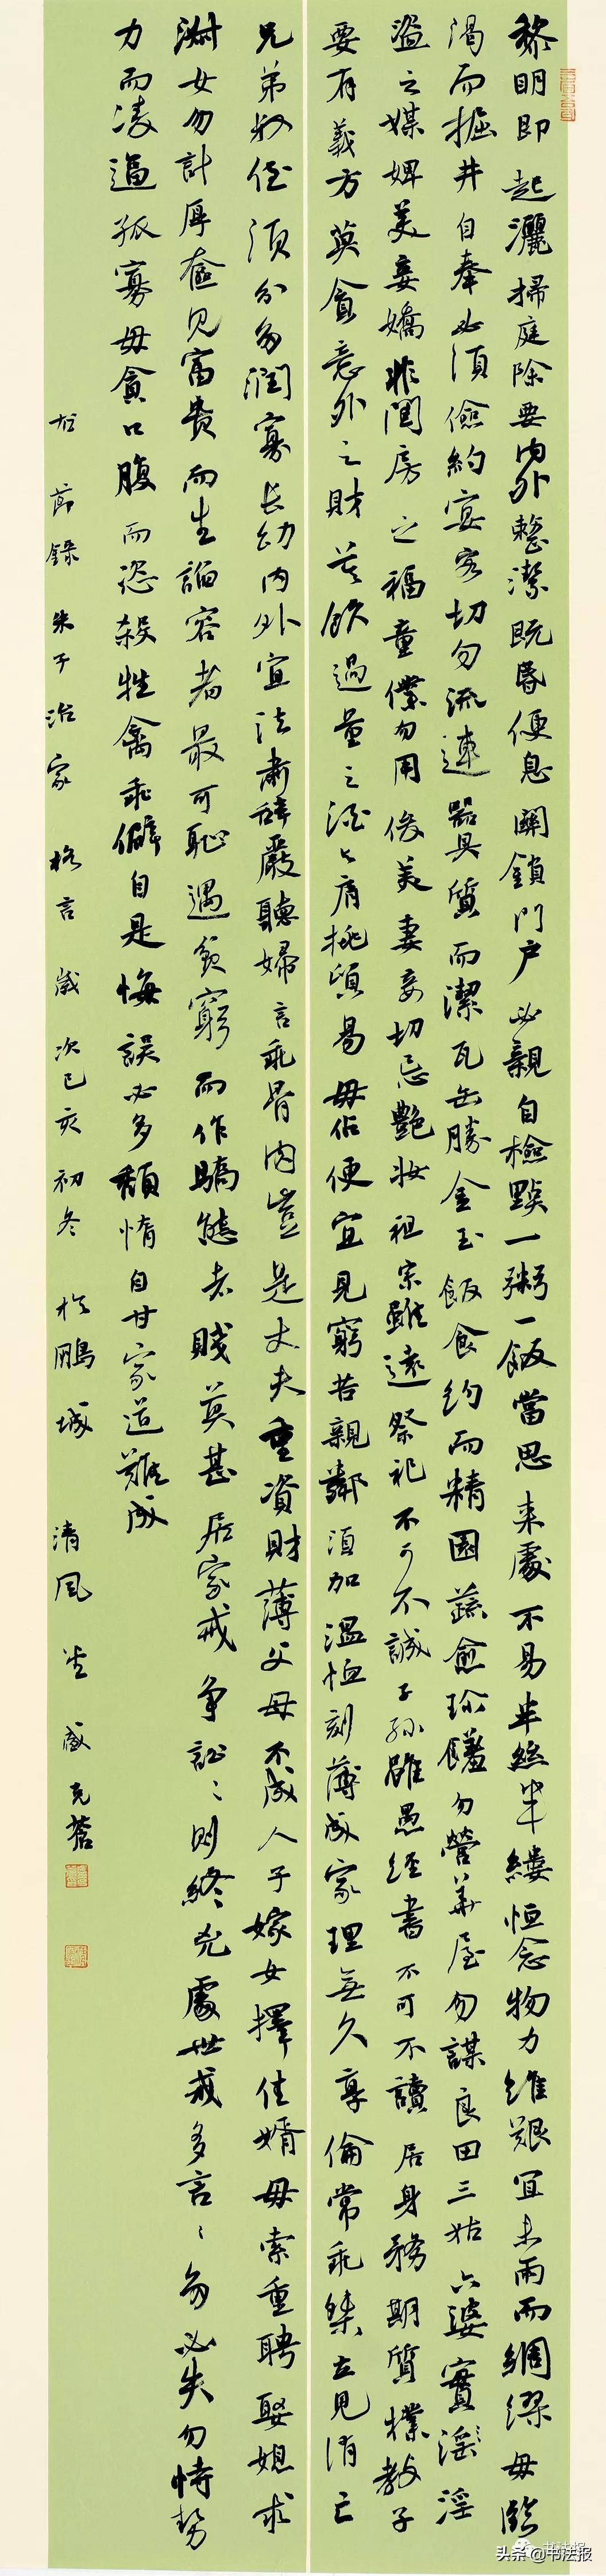 黎明即起灑掃庭除要内外整潔既昏便息關鎖門户必親自檢點一粥一飯當思来處不易半絲半縷恒念物力維艱宜未雨而綢繆毋臨
渴而掘井自奉必須儉約宴客切勿流連器具質而潔瓦缶勝金玉飯食約而精園蔬愈珍饈勿營華屋勿謀良田三姑六婆實淫淫
盗之媒婢美妾嬌非閨房之福童僕勿用俊美妻妾切忌艷妝祖宗雖遠祭祀不可不誠子孫雖愚經書不可不讀居身務期質樸教子
要有義方莫貪意外之財莫飲過量之酒与肩挑貿易毋佔便宜見窮苦親鄰須加溫恤刻薄成家理無久享倫常乖舛立見消亡
兄弟叔侄須分多潤寡長幼内外宜法肅辭嚴聽婦言乖骨肉豈是丈夫重資財薄父母不成人子嫁女擇佳婿毋索重聘娶媳求
淑女勿計厚奩見富貴而生諂容者最可恥遇貧窮而作驕態者賤莫甚居家戒争訟訟則終凶處世戒多言言多必失勿恃勢
力而凌逼孤寡毋貪口腹而恣殺牲禽乖僻自是悔誤必多頹惰自甘家道難成
右節錄朱子治家格言歲次己亥初冬於鵬城清風堂盛克蒼
头条@书法报